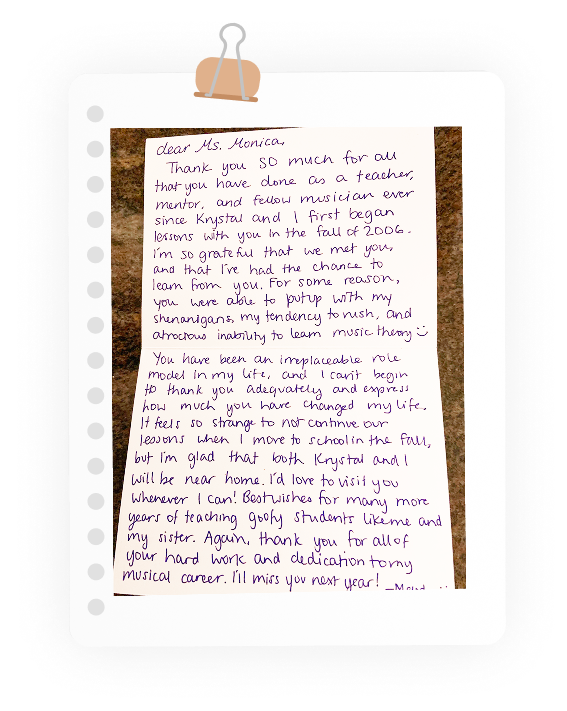 dear Ms. Monica,
Thank you SO much for all
that you have done as a teacher,
mentor, and fellow musician ever
since Krystal and I first began
lessons with you in the fall of 2006.
I'm so grateful that we met you,
and that I've had the chance to
learn from you. For some reason,
you were able to put up with my
shenanigans, my tendency to rush, and
atrocious inability to learn music theory :)
You have been an irreplaceable role
model in my life, and I can't begin
to thank you adequately and express
how much you have changed my life.
It feels so strange to not continue our
lessons when I move to school in the fall,
but I'm glad that both Krystal and I
will be near home. I'd love to visit you
whenever I can! Best wishes for many more
years of teaching goofy students like me and
my sister. Again, thank you for all of
your hard work and dedication to my
musical career. I'll miss you next year!